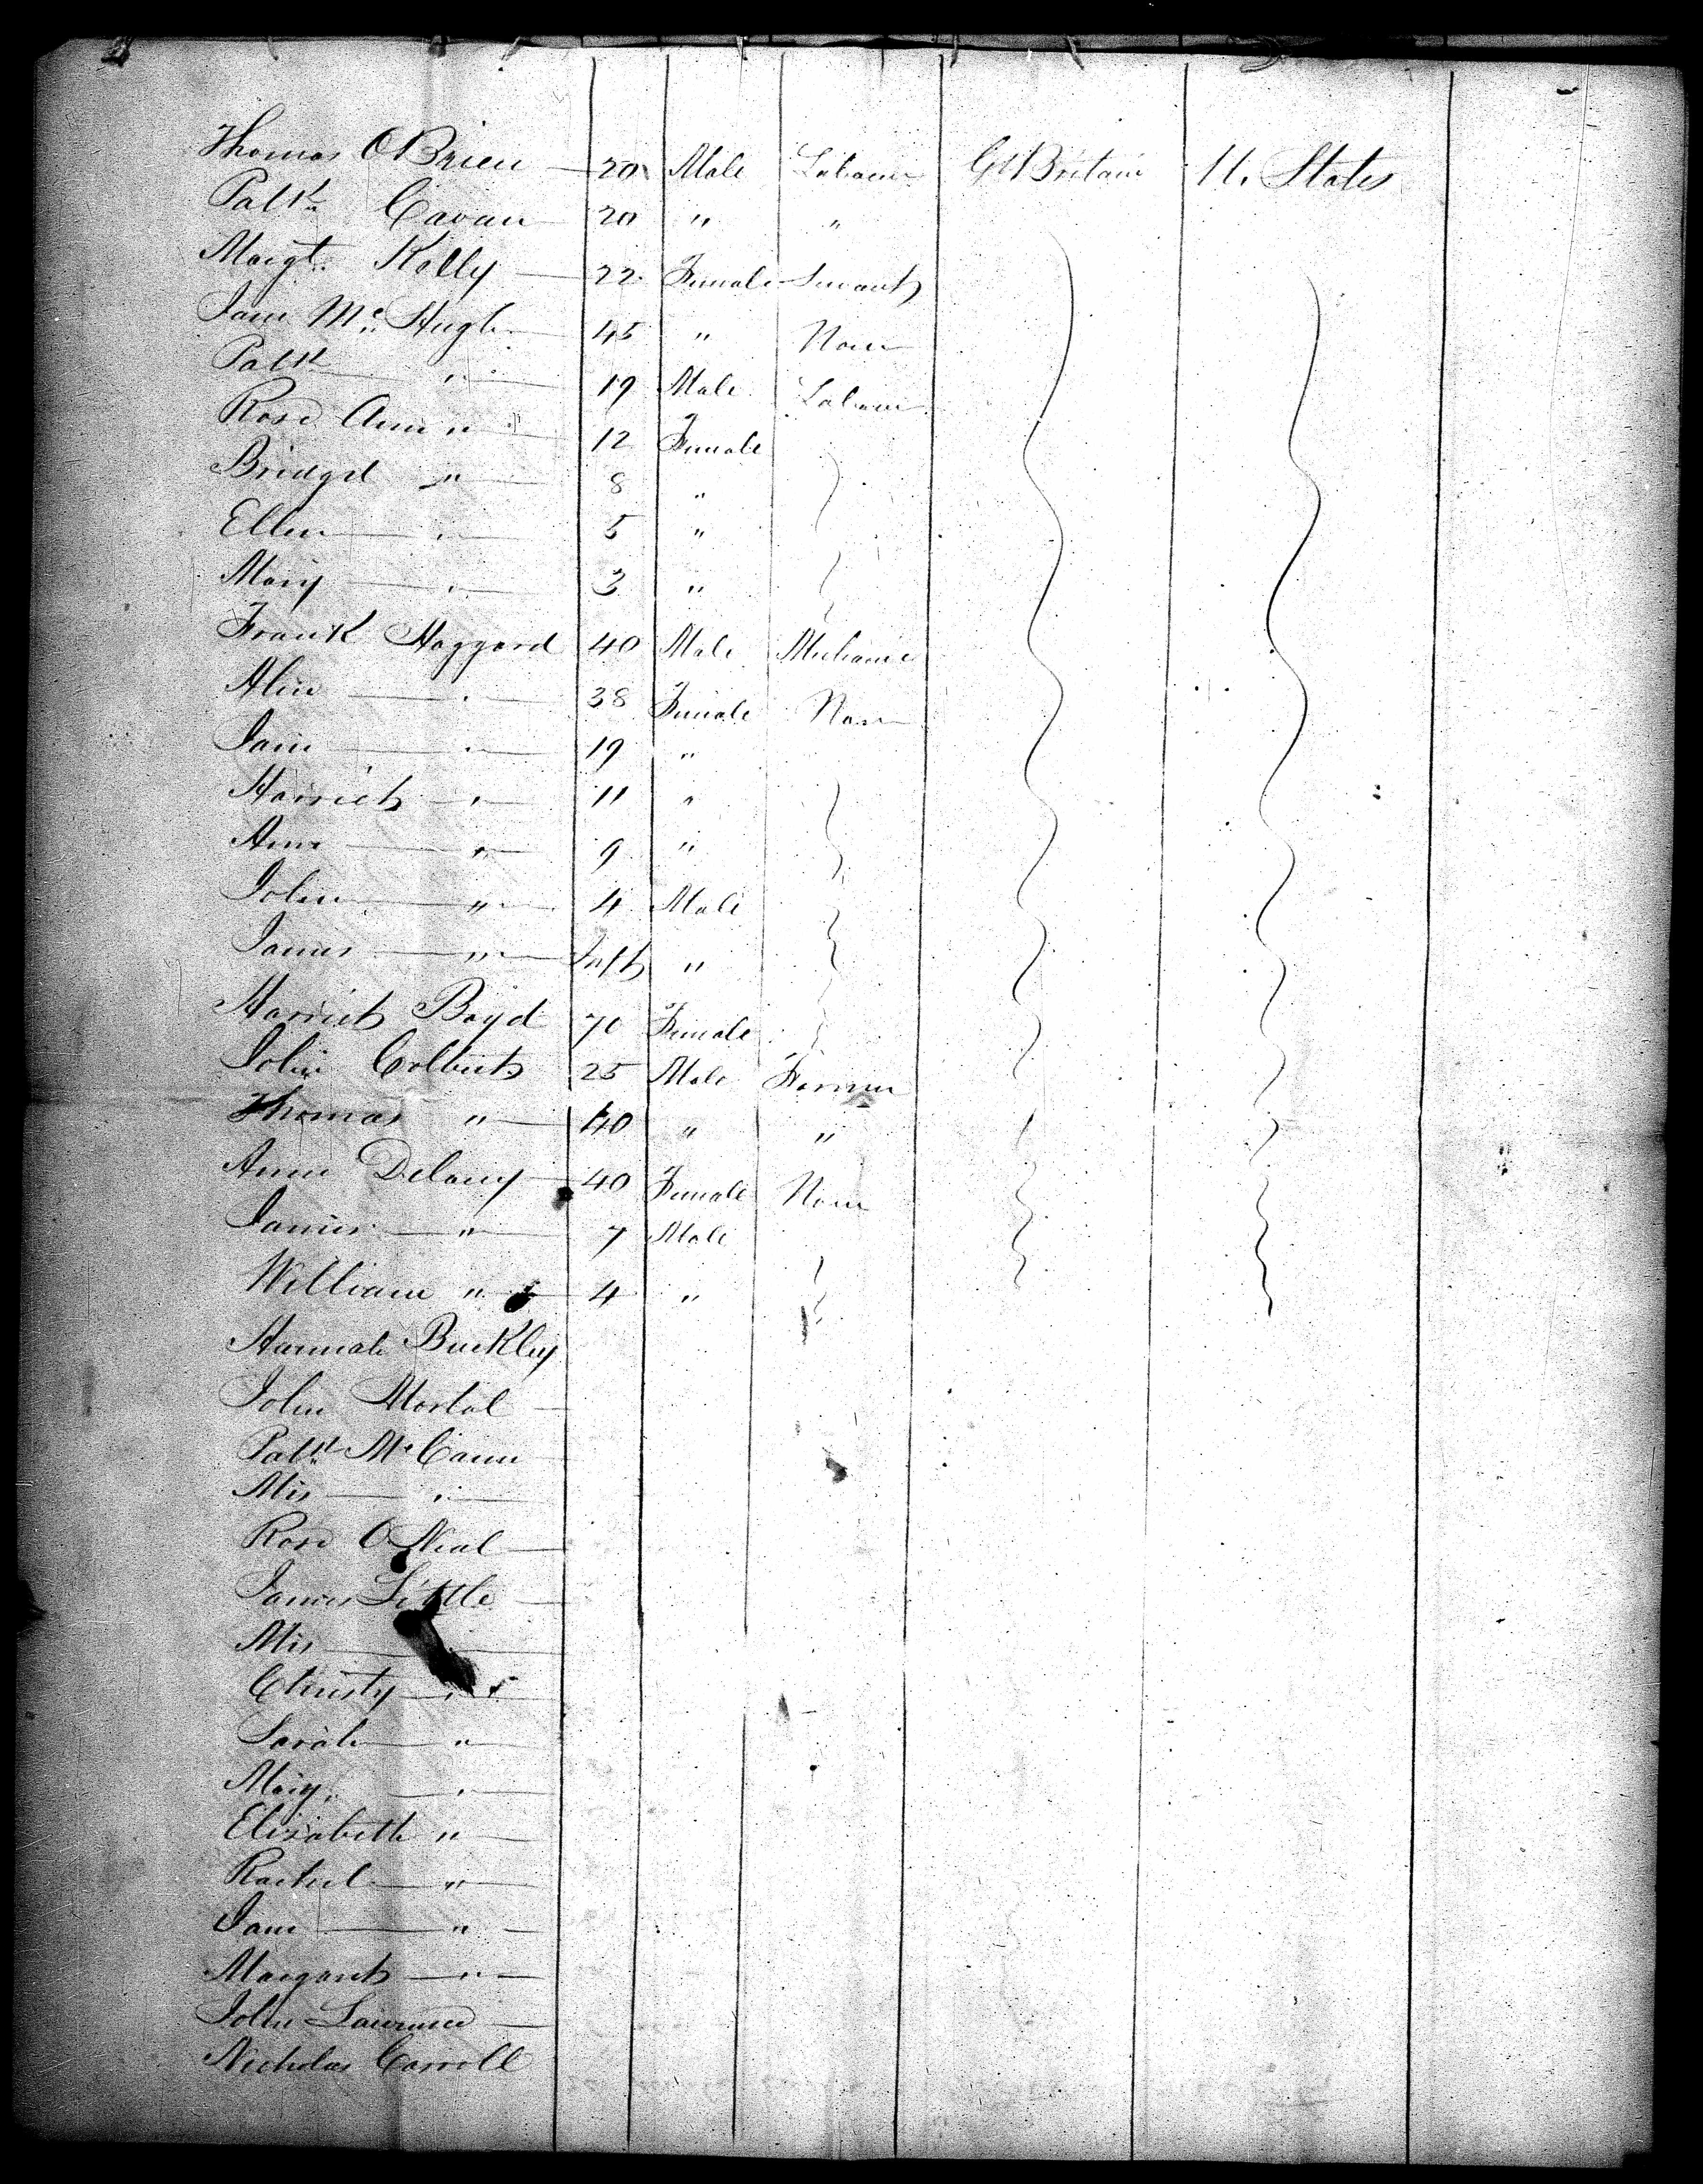 Thomas O'Brien 20 Male Labourer Gt Britain U. States
Patk Cavan 20 " "
Margt Kelly 22 Female Servant
Jane Mc Hugh 45 " None
Patk " 19 Male Labourer
Rose Ann " 12 Female
Bridget " 8 "
Ellen " 5 "
Mary " 3 "
Frank Haggard 40 Male Mechanic
Alice " 38 Female None
Jane " 19 "
Harriet " 11 "
Ann " 9 "
John " 4 Male
James " Inft "
Harriet Boyd 70 Female
John Colbert 25 Male Farmer
Thomas " 40 " "
Anne Delany 40 Female None
James " 7 Male
William " 4 "
Hannah Buckley
John
Patk McCann
Mrs "
Rose O Neal
James Little
Mrs
Christy "
Sarah "
Mary "
Elizabeth "
Rachel "
Jane "
Margaret "
John Lawrence
Nicholas Carroll